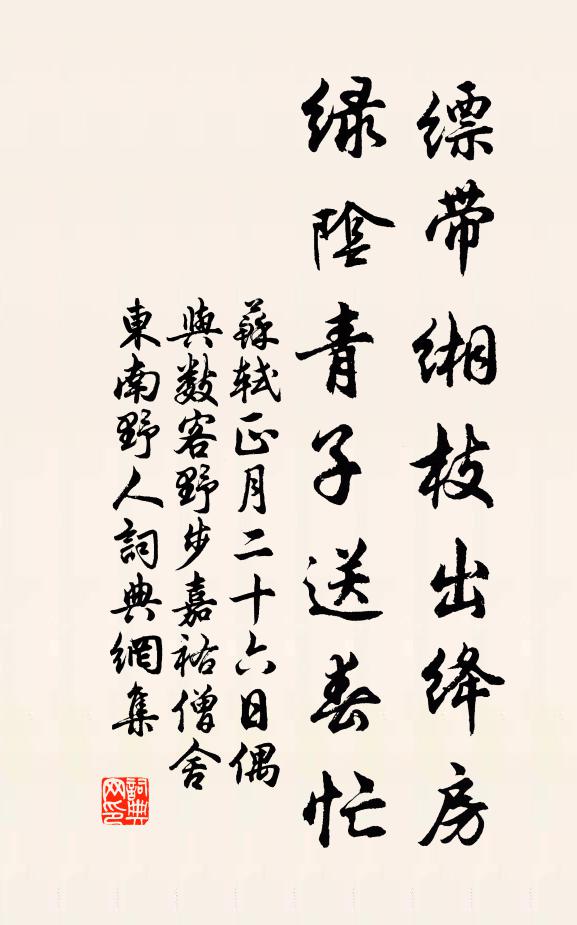 缥带缃枝出绛房
绿陰青子送春忙
蘇軾正月二十六日偶
與數客野步嘉祐僧舍
東南野人詞典網集
詞典
网印